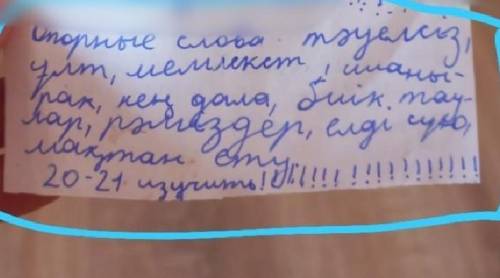 Опорные слова тәуелсіз,
ұлт, мемлекет, шаңы-
рақ, кең дала, биік тау-
лар, рәміздер, елді сүю,
мақтан ету.
20-21 изучить!!!!!!!!!!!!!!!!!!